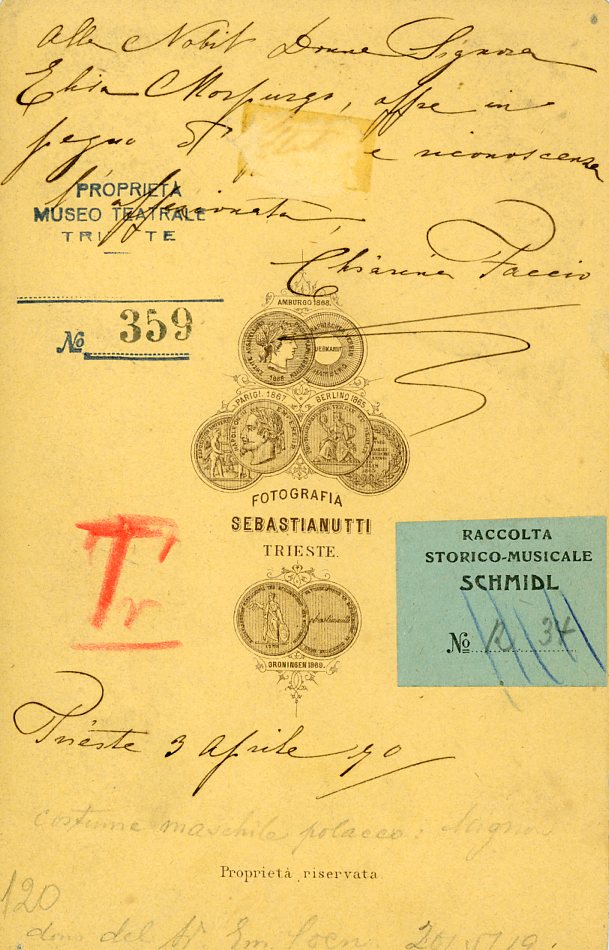 Alla Nobil Donna Signora
Elisa Morpurgo, offre in
pegno di e riconoscenza
l'affezionata
Chiarina Faccio
PROPRIETÀ
MUSEO TEATRALE
TRIESTE
No 359
AMBURGO 1868.
PARIGI 1867
BERLINO 1865
FOTOGRAFIA
SEBASTIANUTTI
TRIESTE.
GRONINGEN 1869.
RACCOLTA
STORICO-MUSICALE
SCHMIDL
No 34
Tr
Trieste 3 Aprile 90
costume maschile polacco:
Proprietà riservata
120
dono del